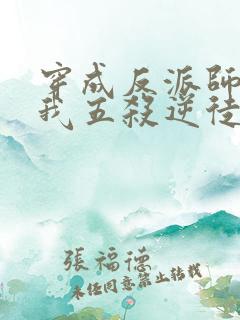 穿成反派師
我五殺逆徒
張福德
未經同意禁止轉載